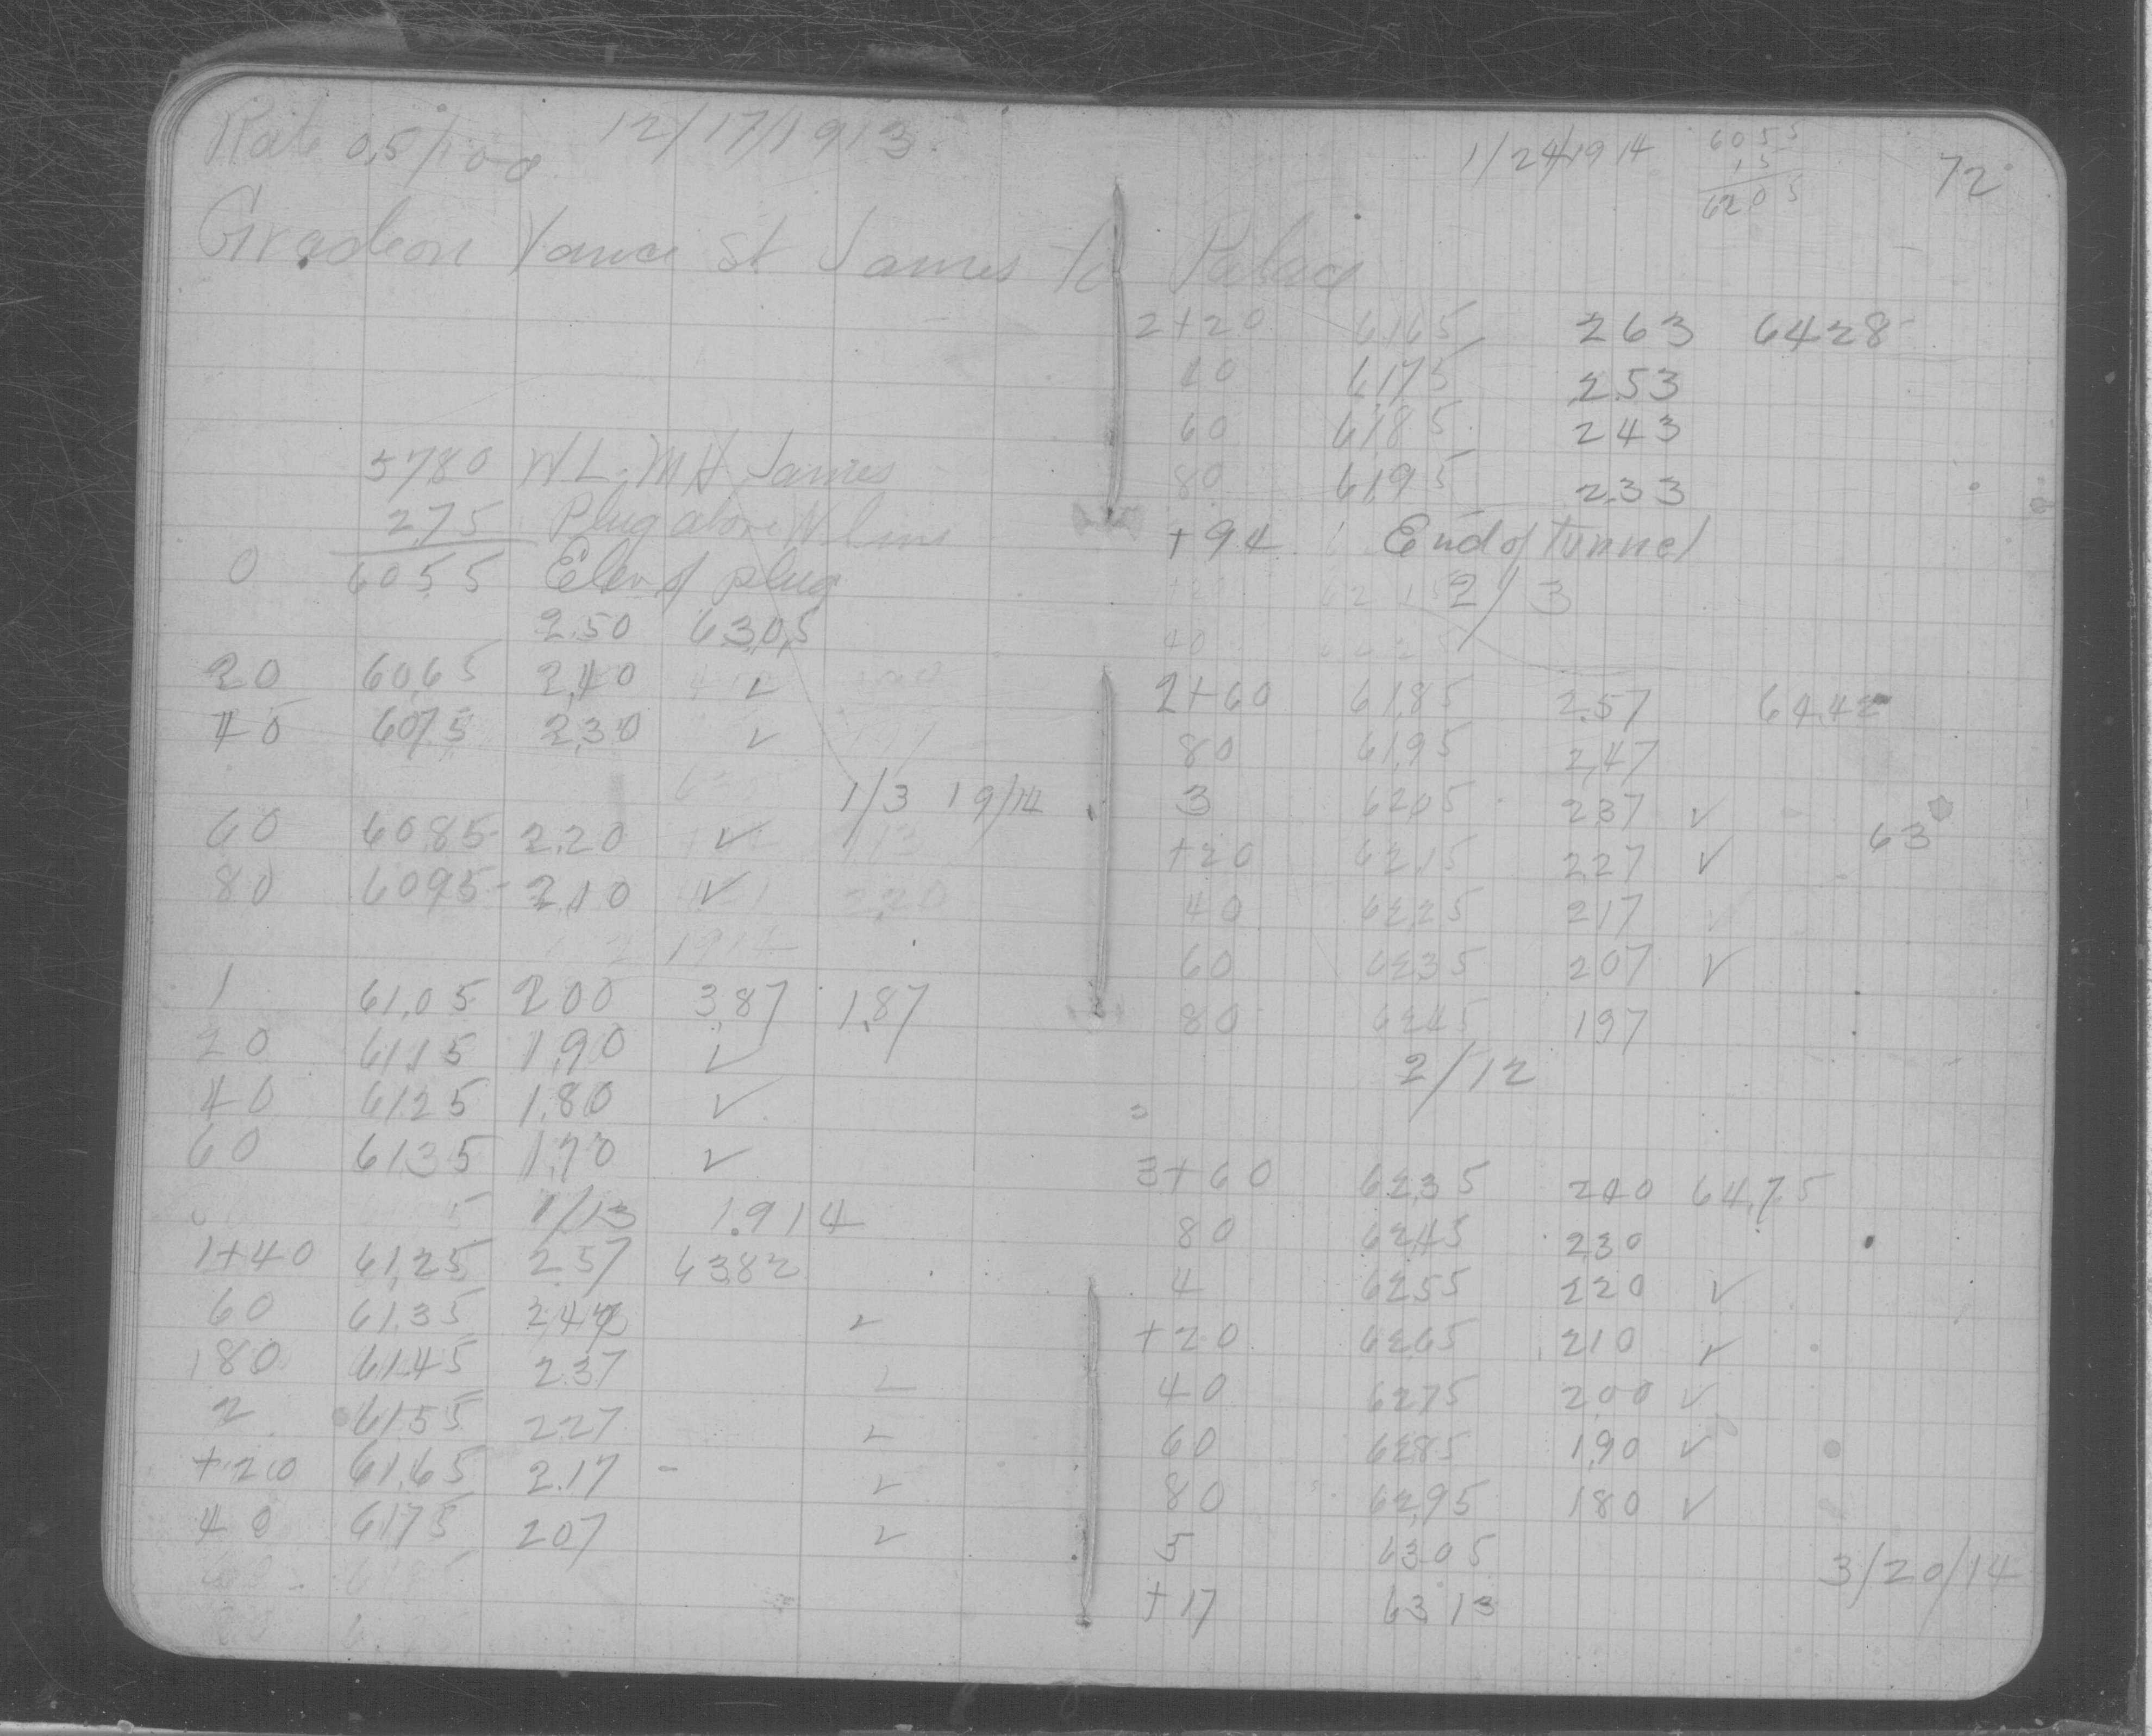 Rate 0.5/100 12/17/1913.
Grade on Vance St James to Palace
5780 W L. M H James
2.75 Plug above W line
0 6055 Elev of plug
2.50 63.05
20 60.65 2.40 ✓
40 6075 2.30 ✓
1/3 1914
60 6085 2.20 ✓
80 6095 2.10 ✓ 2.20
1 61.05 200 3.87 1.87
20 61.15 1.90 ✓
40 6125 1.80 ✓
60 6135 1.70 ✓
1/13 1914
1+40 61.25 2.57 6382
60 61.35 ✓
80 61.45 2.37
2 6155 227 ✓
+20 61.65 2.17 - ✓
40 6175 207 ✓
1/24/1914 6055 72
15
6205
2+20 6165 263 6428
40 6175 2.53
60 6185 243
80 6195 2.33
+94 End of tunnel
2/3
40
2+60 6185 2.57 6442
80 61.95 2.47
3 6205 237 ✓
63
+20 62.15 227 ✓
40 6225 217 ✓
60 6235 207 ✓
80 6245 197
2/12
3+60 6235 240 64.75
80 6245 230
4 6255 220 ✓
+20 6265 210 ✓
40 6275 200 ✓
60 6285 1.90 ✓
80 62.95 180 ✓
5 6305
3/20/14
+17 6313